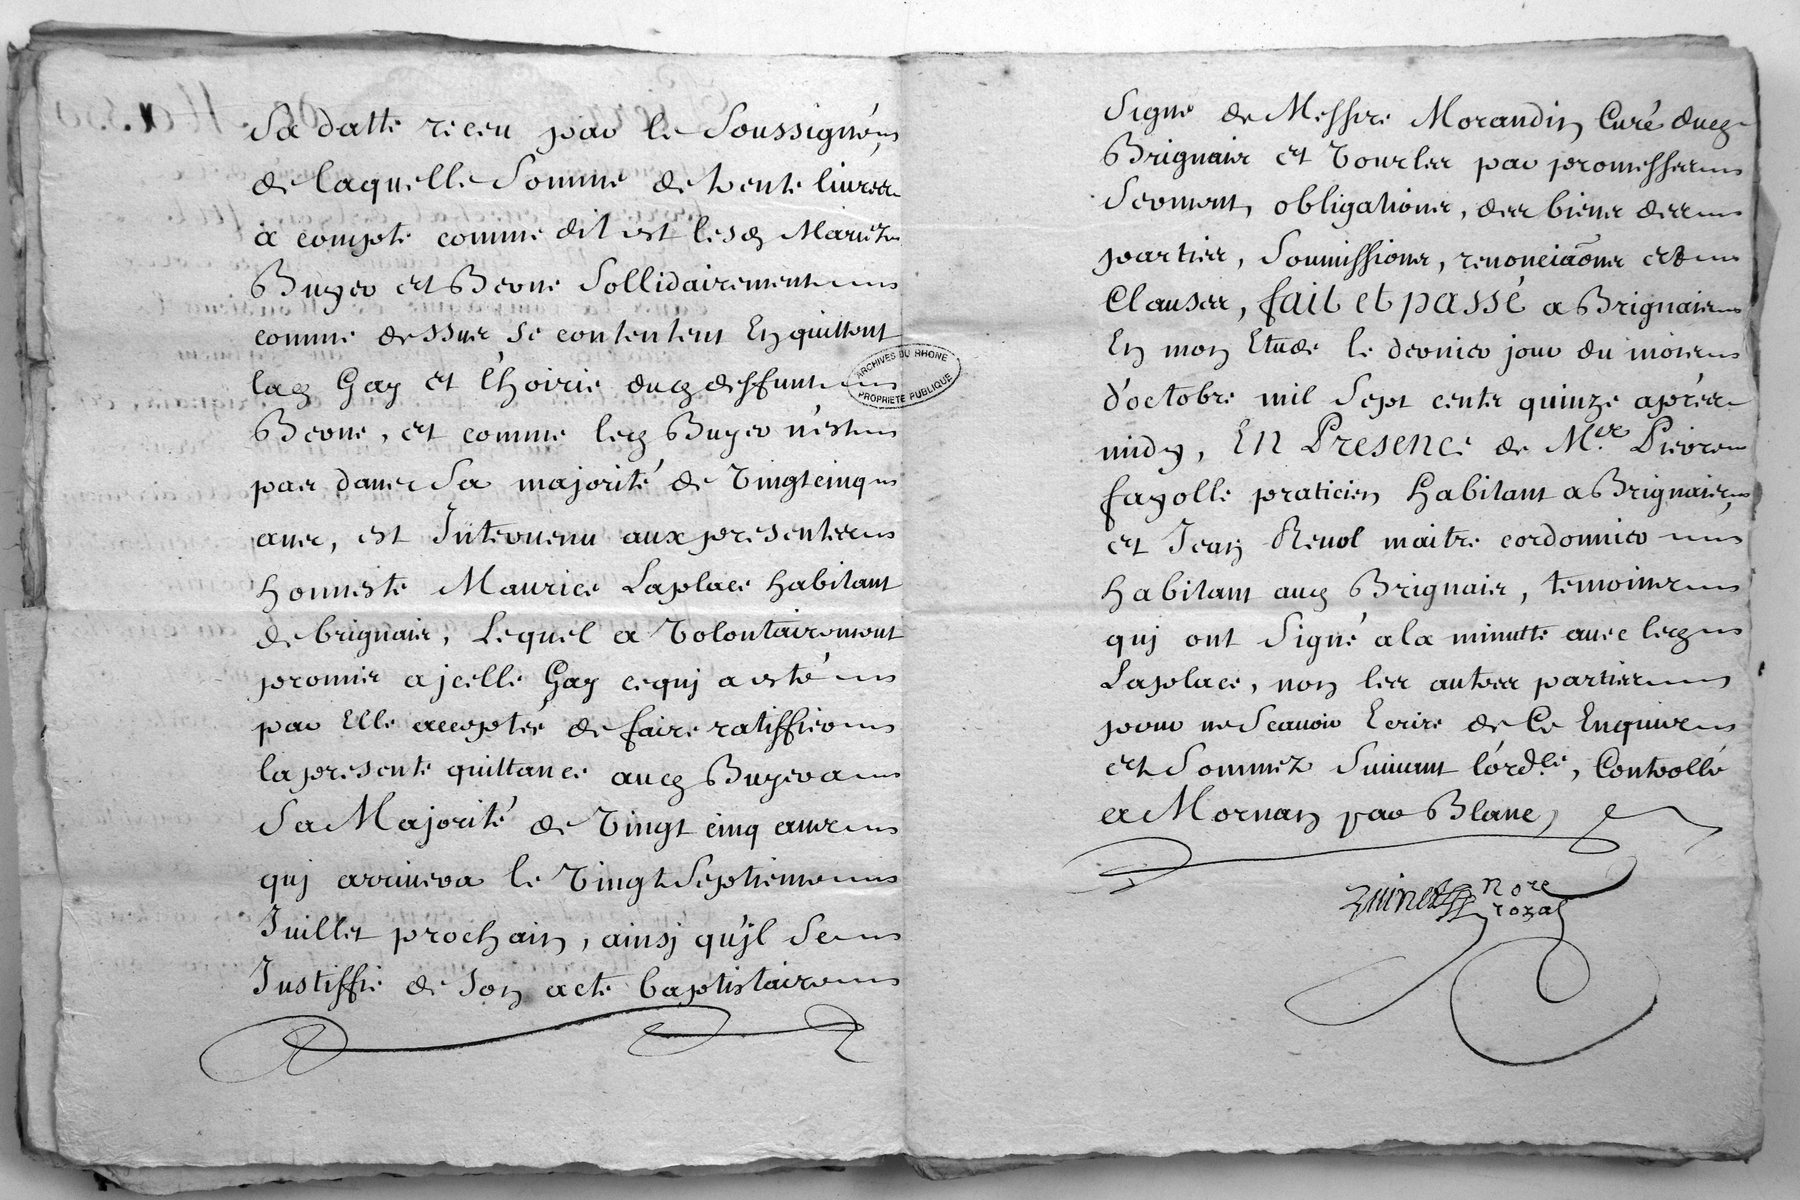 Sa datte receu par le Soussigné,
de laquelle Somme de trente livres
a compte comme dit est lesd Mariez
Buyer et Berne Sollidairement
comme dessus Se contentent En quittent
lad Gay et l'hoirie dud deffunt
Berne, et comme led Buyer n'est
pas dans Sa majorité de Vingt cinq
ans, est Intervenu aux presentes
honneste Maurice Laplace habitant
de brignais, Lequel a Volontairement
promis a jcelle Gay cequj a esté
par Elle accepté de faire ratiffier
la presente quittance aud Buyer a
Sa Majorité de Vingt cinq ans
quj arrivera le Vingt Septieme
Juillet prochain, ainsj qu'jl Se
Justiffie de Son acte baptistaire
ARCHIVES DU RHONE
PROPRIETE PUBLIQUE
Signé de Messire Morandin Curé dud
Brignais et Vourles par promesses
Serment, obligations, des biens des
parties, Soumissions, renonciaons et
Clauses, fait et passé a Brignais
En mon Etude le dernier jour du mois
d'octobre mil Sept cents quinze apres
midy, En Presence de Me. Pierre
fayolle praticien habitant a Brignais,
et Jean Revol maitre cordonnier
habitant aud Brignais, temoins
quj ont Signé a la minutte avec led
Laplace, non les autres parties
pour ne Scavoir Ecrire de Ce Enquis
et Sommez Suivant l'ord.ce, Controllé
a Mornan par Blanc,
nore
royal